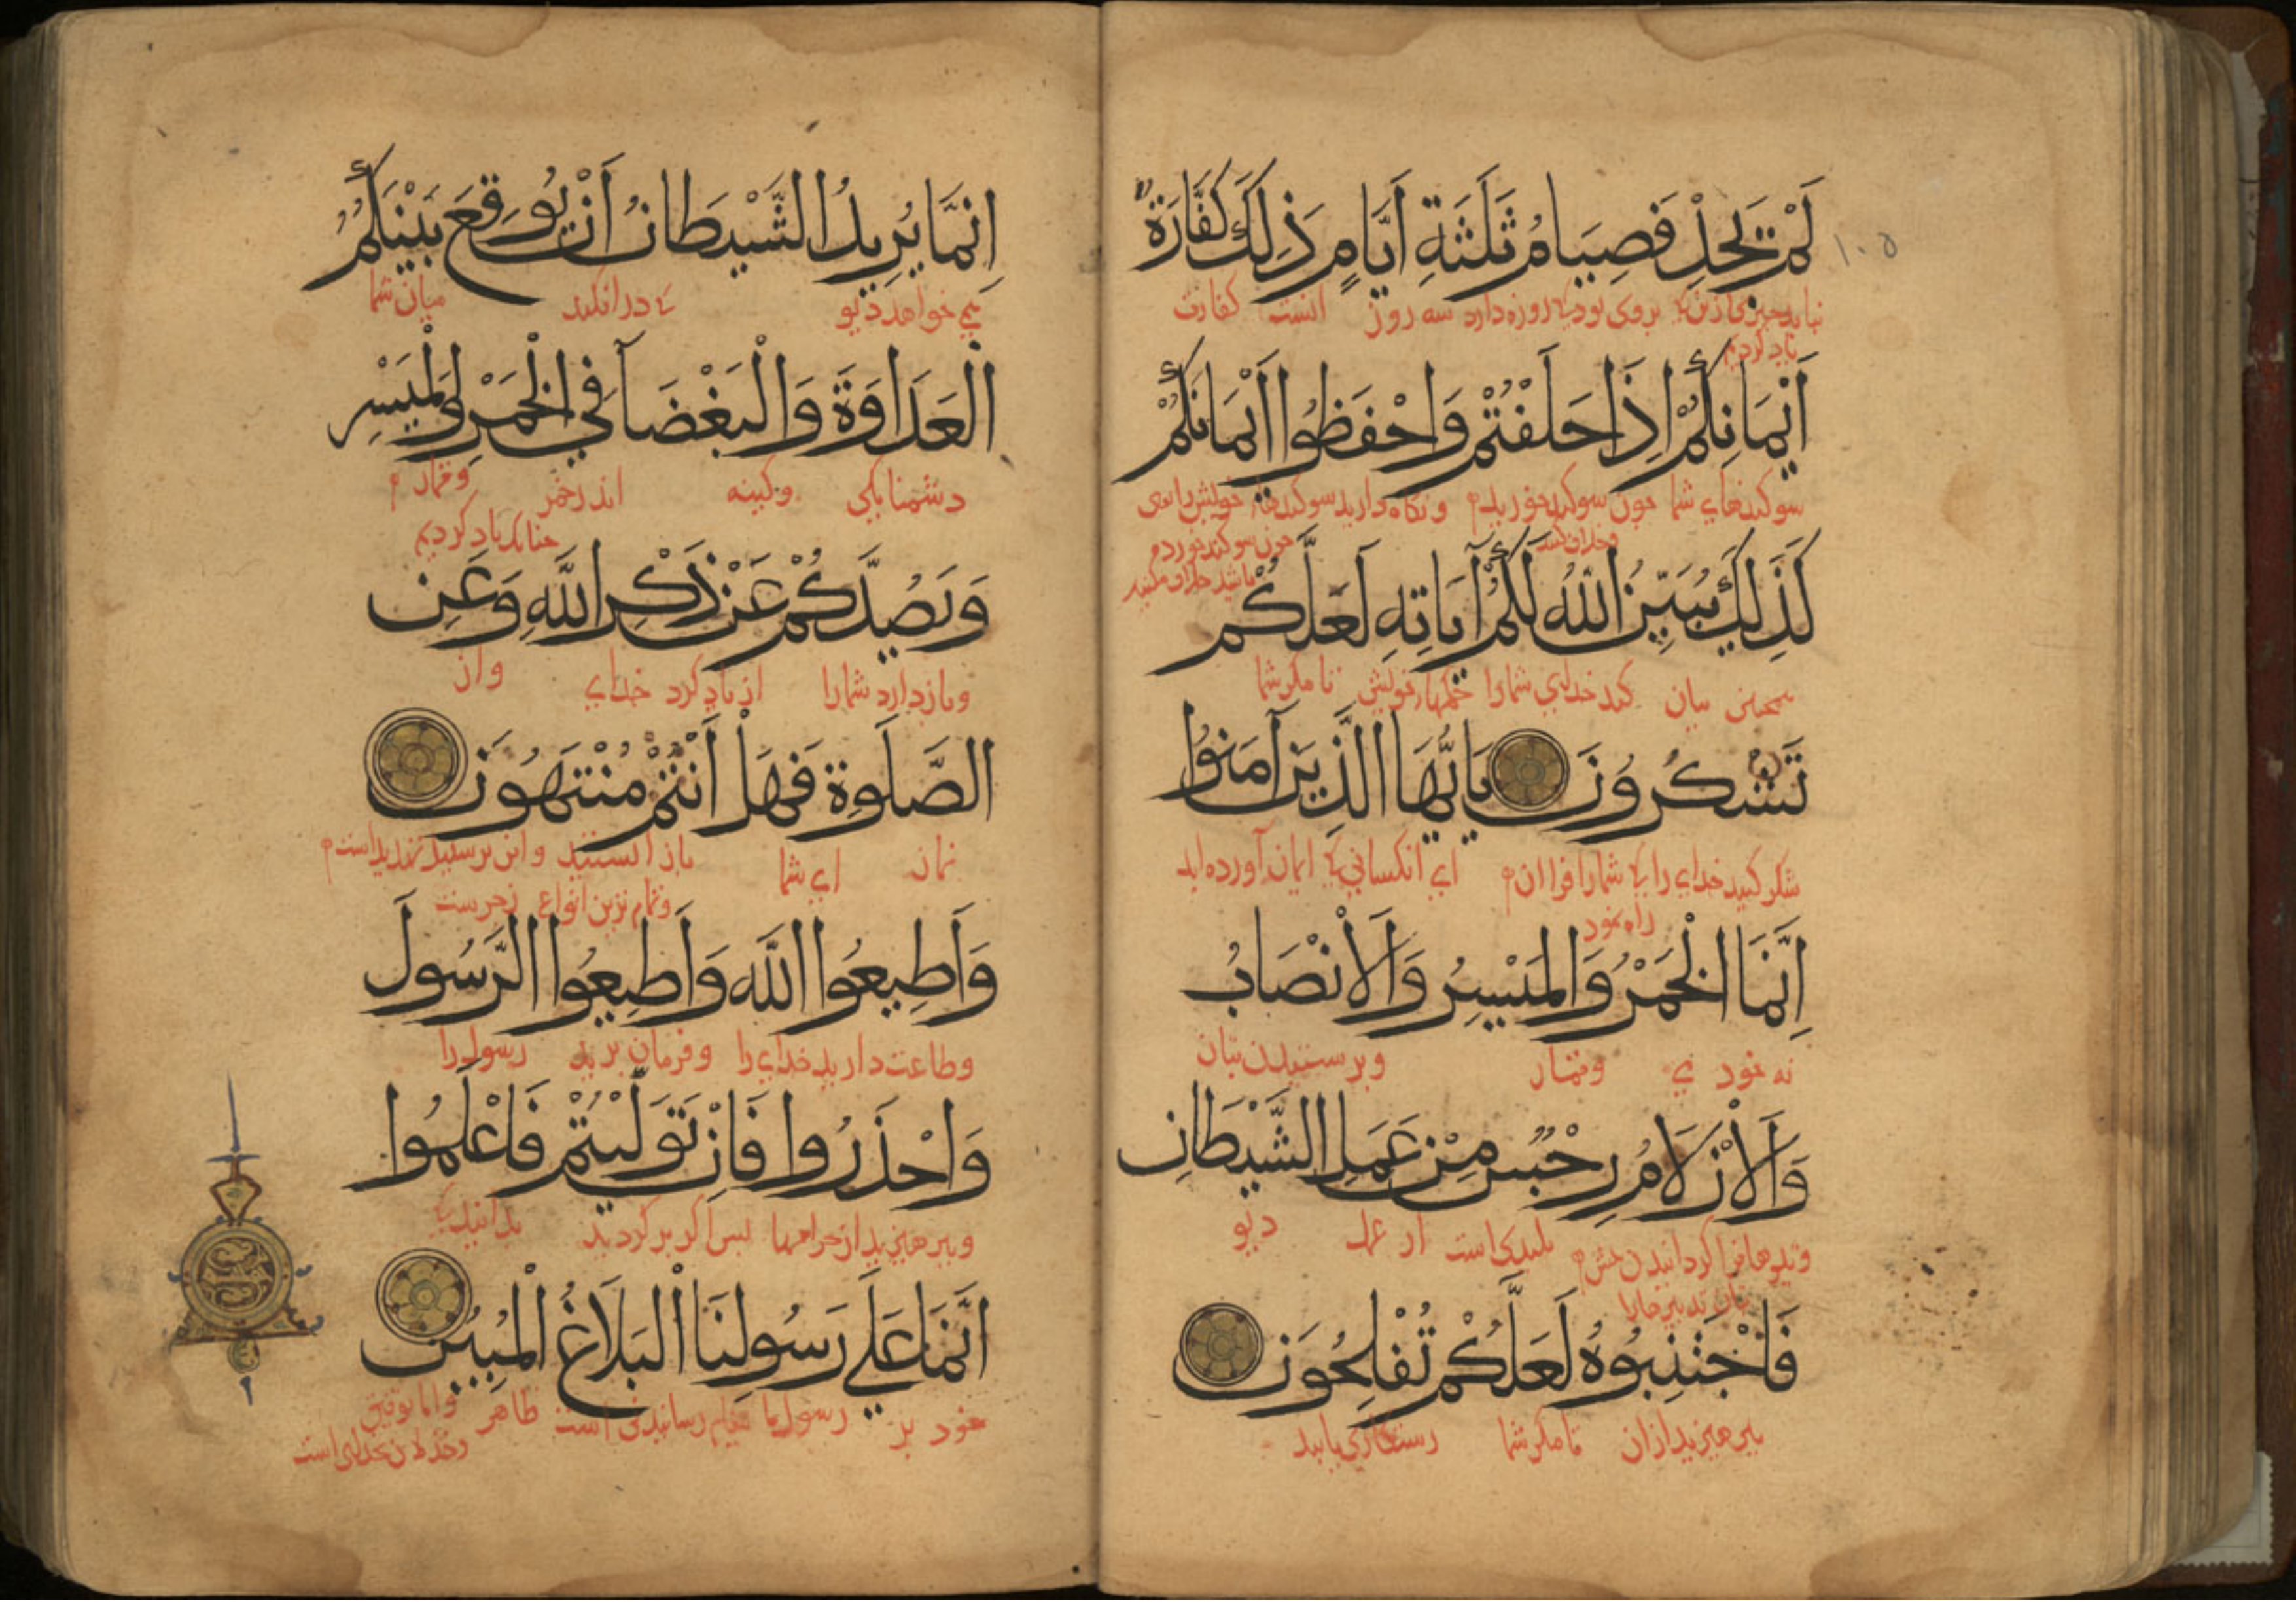 ١٠٥
لَمْ يَجِدْ فَصِيَامُ ثَلَثَةِ أَيَّامٍ ذَلِكَ كَفَّارَةُ
سه روز انست كفارت
أَيْمَانِكُمْ اِذَا حَلَفْتُمْ وَاحْفَظُوا أَيْمَانَكُمْ
سوكندهاي شما چون سوكند خوريد
كَذَلِكَ يُبَيِّنُ اللَّهُ لَكُمْ آيَاتِهِ لَعَلَّكُمْ
بيان كند خداي شمارا تا مكر شما
تَشْكُرُونَ يَا أَيُّهَا الَّذِينَ آمَنُوا
شكر كنيد خداي را اي انكساني ايمان آورده ايد
راه نمود
اِنَّمَا الْخَمْرُ وَالْمَيْسِرُ وَالْأَنْصَابُ
نه خود مي وقمار وپرستيدن بتان
وَالْأَزْلَامُ رِجْسٌ مِنْ عَمَلِ الشَّيْطَانِ
پليدى است از عمل ديو
فَاجْتَنِبُوهُ لَعَلَّكُمْ تُفْلِحُونَ
بپرهيزيد ازان تا مكر شما رستكاري يابيد
اِنَّمَا يُرِيدُ الشَّيْطَانُ أَنْ يُوقِعَ بَيْنَكُمُ
مي خواهد ديو كه در افكند ميان شما
الْعَدَاوَةَ وَالْبَغْضَآءَ فِي الْخَمْرِ وَالْمَيْسِرِ
دشمنايكي وكينه اندر خمر وقمار
چنانك ياد كرديم
وَيَصُدَّكُمْ عَنْ ذِكْرِ اللَّهِ وَعَنِ
وبازدارد شمارا از ياد كرد خداي واز
الصَّلَوةِ فَهَلْ أَنْتُمْ مُنْتَهُونَ
نماز اي شما باز ايستيد
وَأَطِيعُوا اللَّهَ وَأَطِيعُوا الرَّسُولَ
وطاعت داريد خداي را وفرمان بريد رسول را
وَاحْذَرُوا فَاِنْ تَوَلَّيْتُمْ فَاعْلَمُوا
وبپرهيزيد از حرامها پس اكر بركرديد بدانيد كه
اَنَّمَا عَلَي رَسُولِنَا الْبَلَاغُ الْمُبِينُ
خود بر رسول ما پيغام رسانيدن است ظاهر